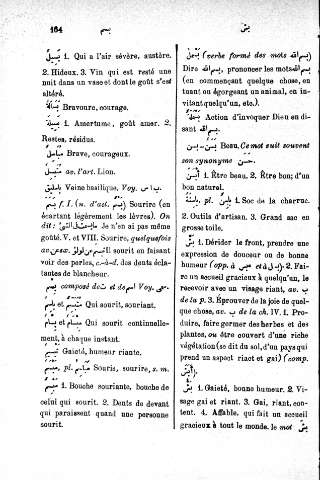 164
بسم
بش
1. Qui a l'air sévère, austère.
2. Hideux. 3. Vin qui est resté une
nuit dans un vase et dont le goût s'est
altéré.
بسالة Bravoure, courage.
1. Amertume, goût amer. 2.
Restes, résidus.
Brave, courageux.
av. l'art. Lion.
Veine basilique, Voy.
بسم f. I. (n. d'act. بسم) Sourire (en
écartant légèrement les lèvres). On
dit: Je n'en ai même
goûté. V. et VIII. Sourire, quelquefois
av. sourit en faisant
voir des perles, c.-à-d. des dents écla-
tantes de blancheur.
composé de et de اسم Voy.
et Qui sourit, souriant.
بسام et Qui sourit continuelle-
ment, à chaque instant.
Gaieté, humeur riante.
pl. Souris, sourire, s. m.
1. Bouche souriante, bouche de
celui qui sourit. 2. Dents de devant
qui paraissent quand une personne
sourit.
(verbe formé des mots بسم الله)
Dire بسم الله, prononcer les mots بسم الله
(en commençant quelque chose, en
tuant ou égorgeant un animal, en in-
vitant quelqu'un, etc.).
بسملة Action d'invoquer Dieu en di-
sant بسم الله.
Beau, Ce mot suit souvent
son synonyme حسن.
1. Être beau. 2. Être bon; d'un
bon naturel.
pl. 1. Soc de la charrue.
2. Outils d'artisan. 3. Grand sac en
grosse toile.
بش 1. Dérider le front, prendre une
expression de douceur ou de bonne
humeur (opp. à et à) 2. Fai-
re un accueil gracieux à quelqu'un, le
recevoir avec un visage riant, av. ب
de la p. 3. Éprouver de la joie de quel-
que chose, av. ب de la ch. IV. 1. Pro-
duire, faire germer des herbes et des
plantes, ou être couvert d'une riche
végétation (se dit du sol, d'un pays qui
prend un aspect riant et gai) (comp.
بش 1. Gaieté, bonne humeur. 2. Vi-
sage gai et riant. 3. Gai, riant, con-
tent. 4. Affable, qui fait un accueil
gracieux à tout le monde. le mot بش